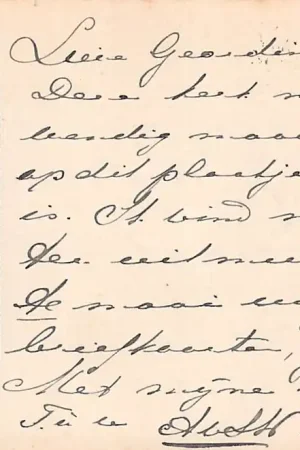 Lieve Geordi
Deze keer
wendig maa
op dit plaatje
is. Ik vind
den uit
de mooi
briefkaarten,
Met mijne
T. à v.